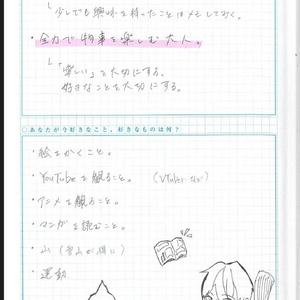 └「少しでも興味を持ったことはメモしておく。
・全力で物事を楽しむ大人。
└「楽しい」を大切にする。
好きなことを大切にする。
○あなたが今好きなこと、好きなものは何？
・絵をかくこと。
・YouTubeを観ること。（VTuberなど）
・アニメを観ること。
・マンガを読むこと。
・山（雪山が特に）
・運動